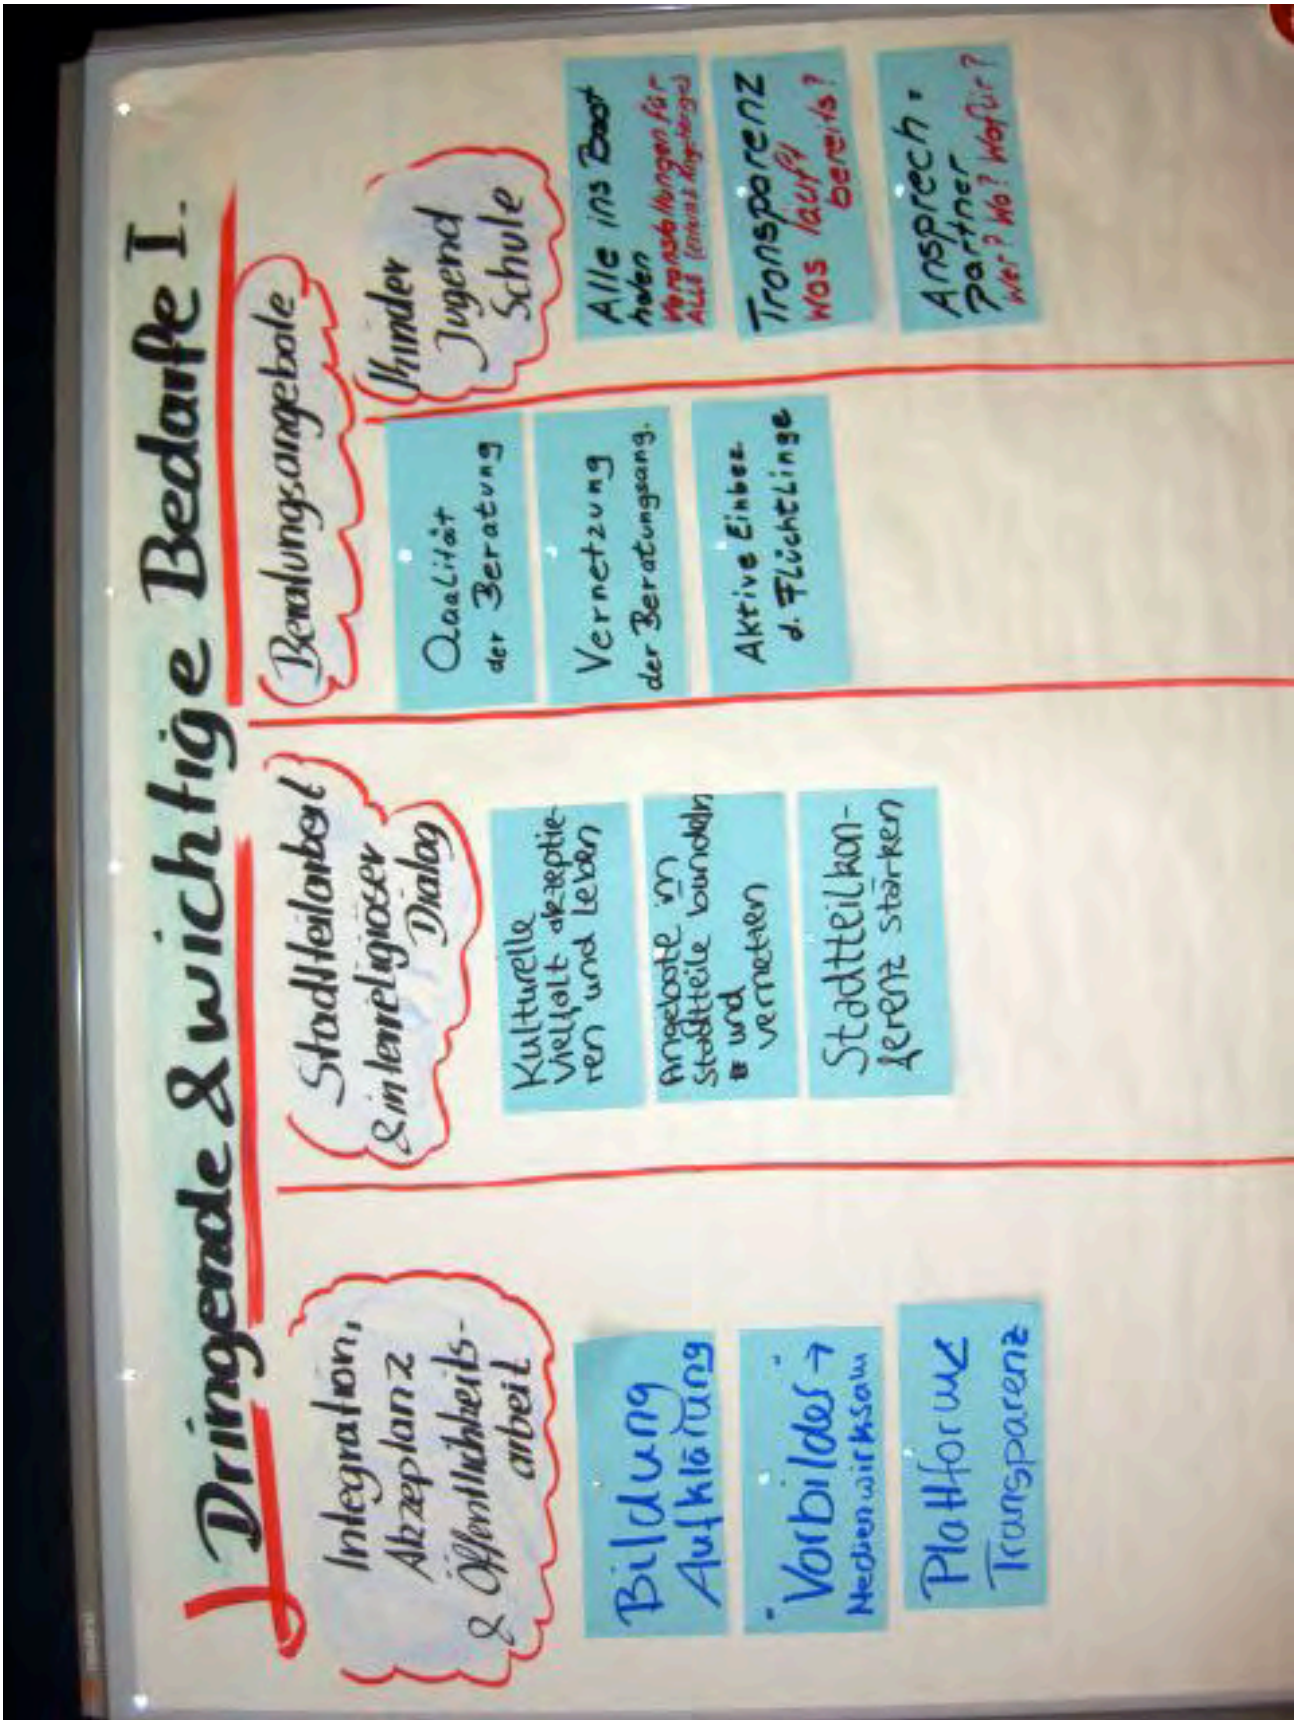 Dringende & wichtige Bedarfe I.
Integration,
Akzeptanz
& Öffentlichkeits-
arbeit
Bildung
Aufklärung
"Vorbilder" →
Medienwirksam
Plattform
Transparenz
Stadtteilarbeit
& interreligiöser
Dialog
Kulturelle
Vielfalt akzeptie-
ren und Leben
Angebote im
Stadtteile bündeln
und
vernetzen
Stadtteilkon-
ferenz stärken
Beratungsangebote
Qualität
der Beratung
Vernetzung
der Beratungsang.
Aktive Einbez.
d. Flüchtlinge
Kinder
Jugend
Schule
Alle ins Boot
holen
Veranstaltungen für
ALLE
Transparenz
Was läuft
bereits?
Ansprech-
partner
Wer? Wo? Wofür?